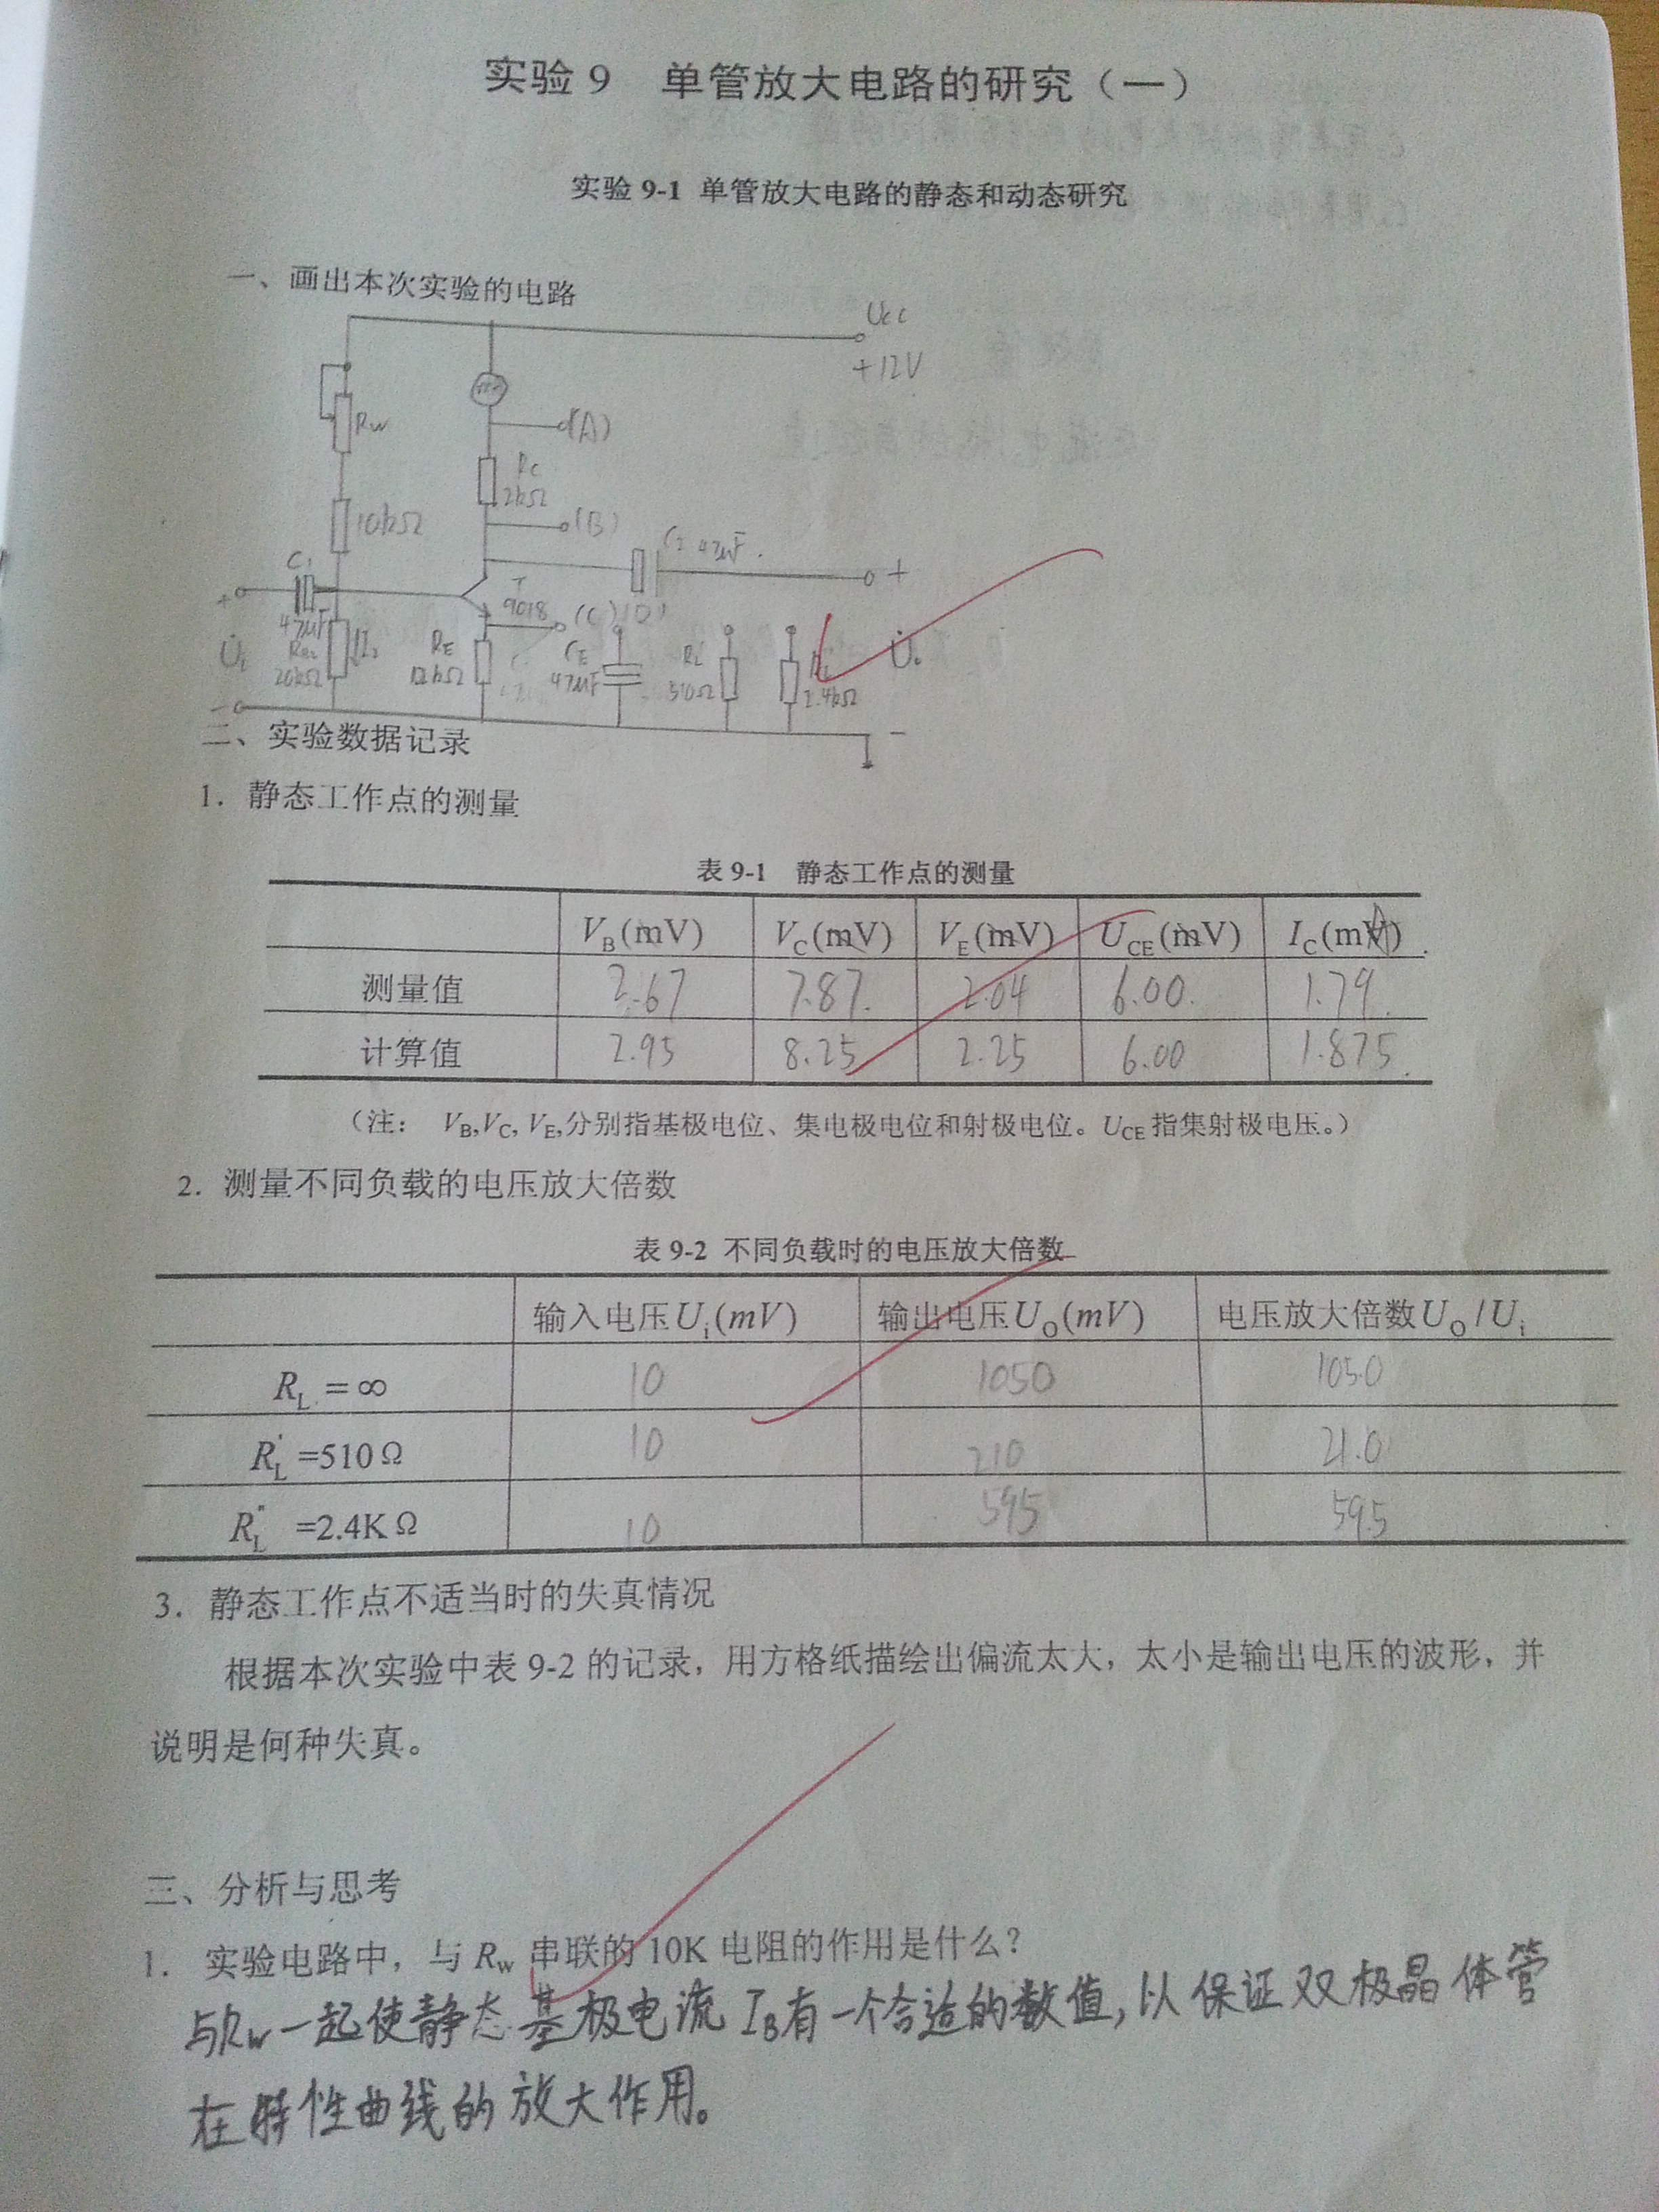 实验 9 单管放大电路的研究（一）
实验 9-1 单管放大电路的静态和动态研究
一、画出本次实验的电路
Ucc
+12V
RW
(A)
RC
2kΩ
10kΩ
(B)
C2 47μF
+
C1
+
T
9018
(C) (D)
47μF
Ui
RB2
20kΩ
I2
RE
12kΩ
CE
47μF
RL
510Ω
RL
2.4kΩ
U̇o
-
-
二、实验数据记录
1. 静态工作点的测量
表 9-1 静态工作点的测量
VB(mV) VC(mV) VE(mV) UCE(mV) IC(mA)
测量值 2.67 7.87. 2.04 6.00. 1.79.
计算值 2.95 8.25 2.25 6.00 1.875.
（注： VB,VC, VE,分别指基极电位、集电极电位和射极电位。UCE 指集射极电压。）
2. 测量不同负载的电压放大倍数
表 9-2 不同负载时的电压放大倍数
输入电压Ui(mV) 输出电压UO(mV) 电压放大倍数UO/Ui
RL=∞ 10 1050 105.0
RL'=510Ω 10 210 21.0
RL"=2.4KΩ 10 595 59.5
3. 静态工作点不适当时的失真情况
根据本次实验中表 9-2 的记录，用方格纸描绘出偏流太大，太小是输出电压的波形，并
说明是何种失真。
三、分析与思考
1. 实验电路中，与 Rw 串联的 10K 电阻的作用是什么？
与Rw一起使静态基极电流 IB有一个合适的数值，以保证双极晶体管
在特性曲线的放大作用。